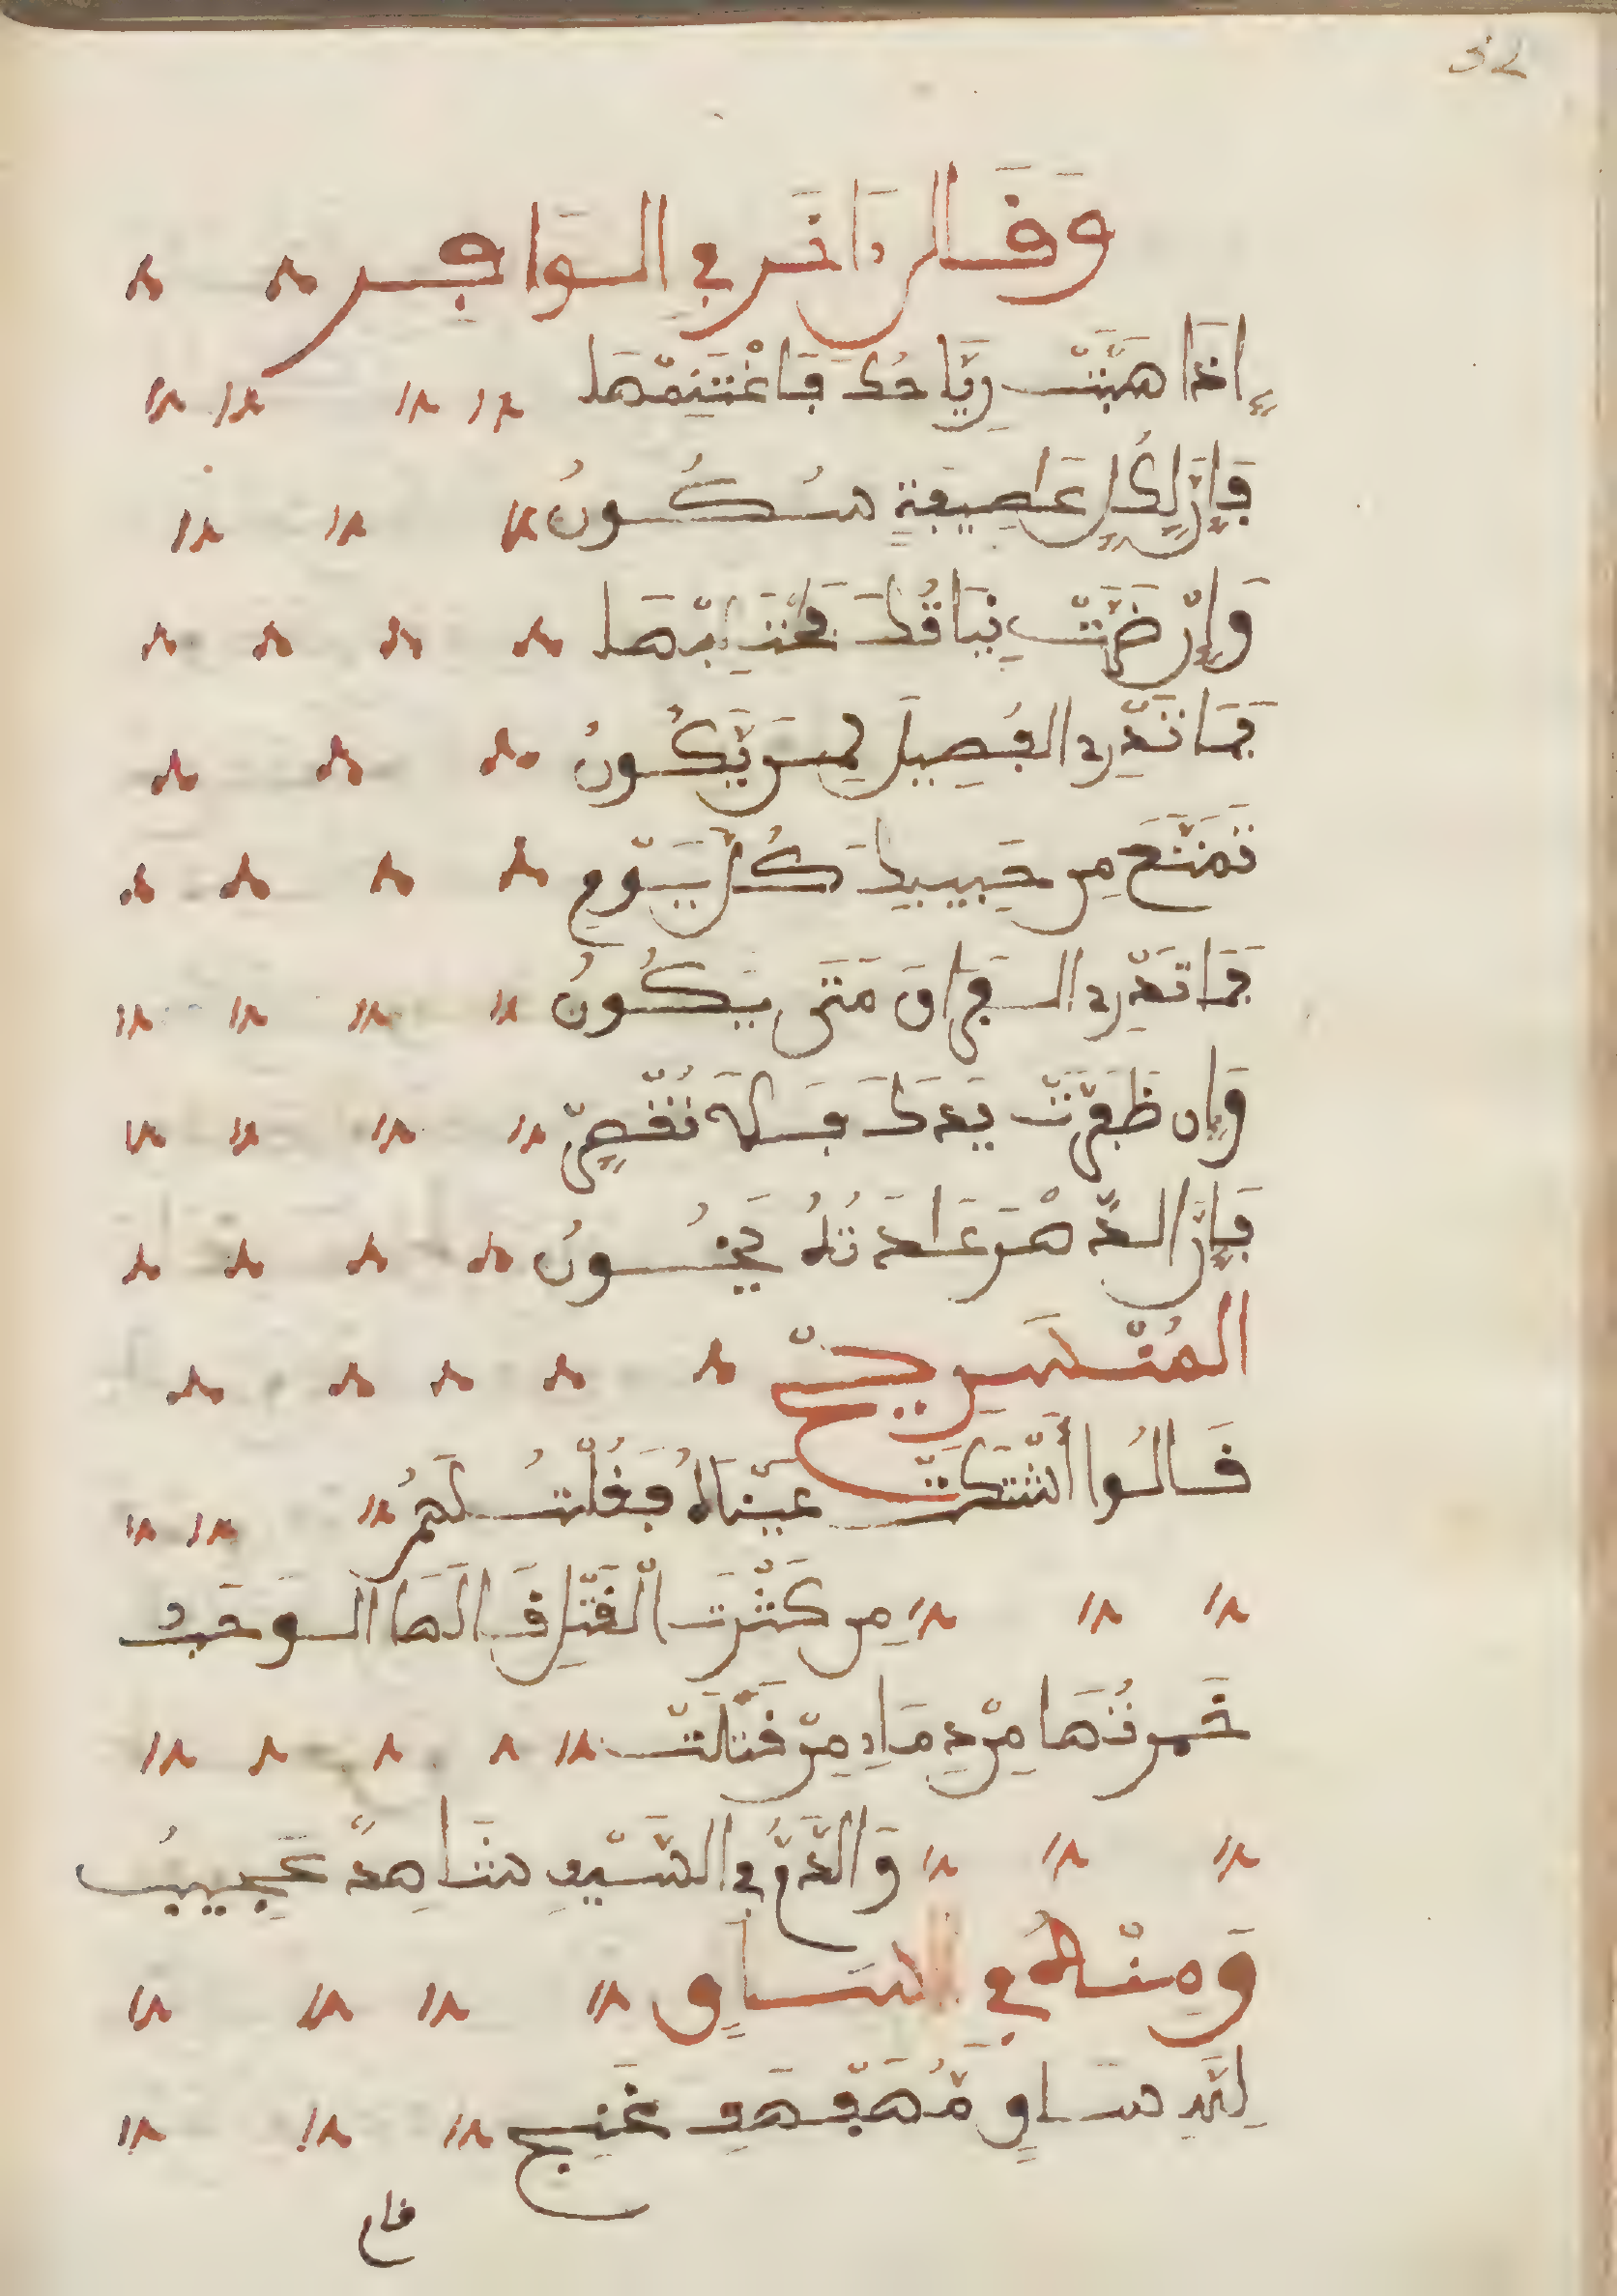 32
وَقَالَ ءَاخَر فِي الوَافِر
إِذَا هَبَّتْ رِيَّاحُكَ فَاغْتَنِمْهَا
فَإِنَّ لِكُلِ عَاصِيفَةٍ سُكُونُ
وَإِنْ ضَنَّتْ نِيَاقُكَ فَحْتَلِبْهَا
فَمَا تَدْرِي الفُصِيلَ لِمَنْ يَّكُونُ
تَمَتَّعْ مِن حَبِيبِكَ كُلَّ يَوْمٍ
فَمَا تَدْرِي الفِرَاقَ مَتَى يَكُونُ
وَإِن ظَفِرَتْ يَدَكَ فَلَا تُقْصِرْ
فَإِنَّ الدَّهْرَ عَادَتُهُ يَخُونُ
المُنْسَرِيحْ
قَالُوا أَشْتَكَتْ عَيْنَاهُ فَقُلْتُ لَهُمُ
مِن كَثْرَتِ الْقَتْلِ قَالَهَا الوَجَبُ
خَمرتُهَا مِنْ دِمَاءِ مِنْ قَتَلَتْ
وَالدَّمُّ فِي السَّيْفِ شَاهِدً عَجِيبُ
وَمِنْهُ فِي السَاقٍ
لِلَّهِ سَاقٍ مُّهَفْهَفِ غَنِجِ
قام